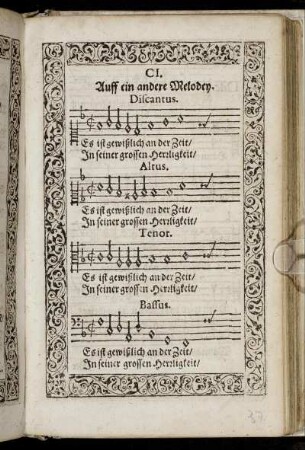 CI.
Auff ein andere Melodey.
Discantus.
Es ist gewißlich an der Zeit/
In seiner grossen Herrligkeit/
Altus.
Es ist gewißlich an der Zeit/
In seiner grossen Herrligkeit/
Tenor.
Es ist gewißlich an der Zeit/
In seiner grossen Herrligkeit/
Bassus.
Es ist gewißlich an der Zeit/
In seiner grossen Herrligkeit/